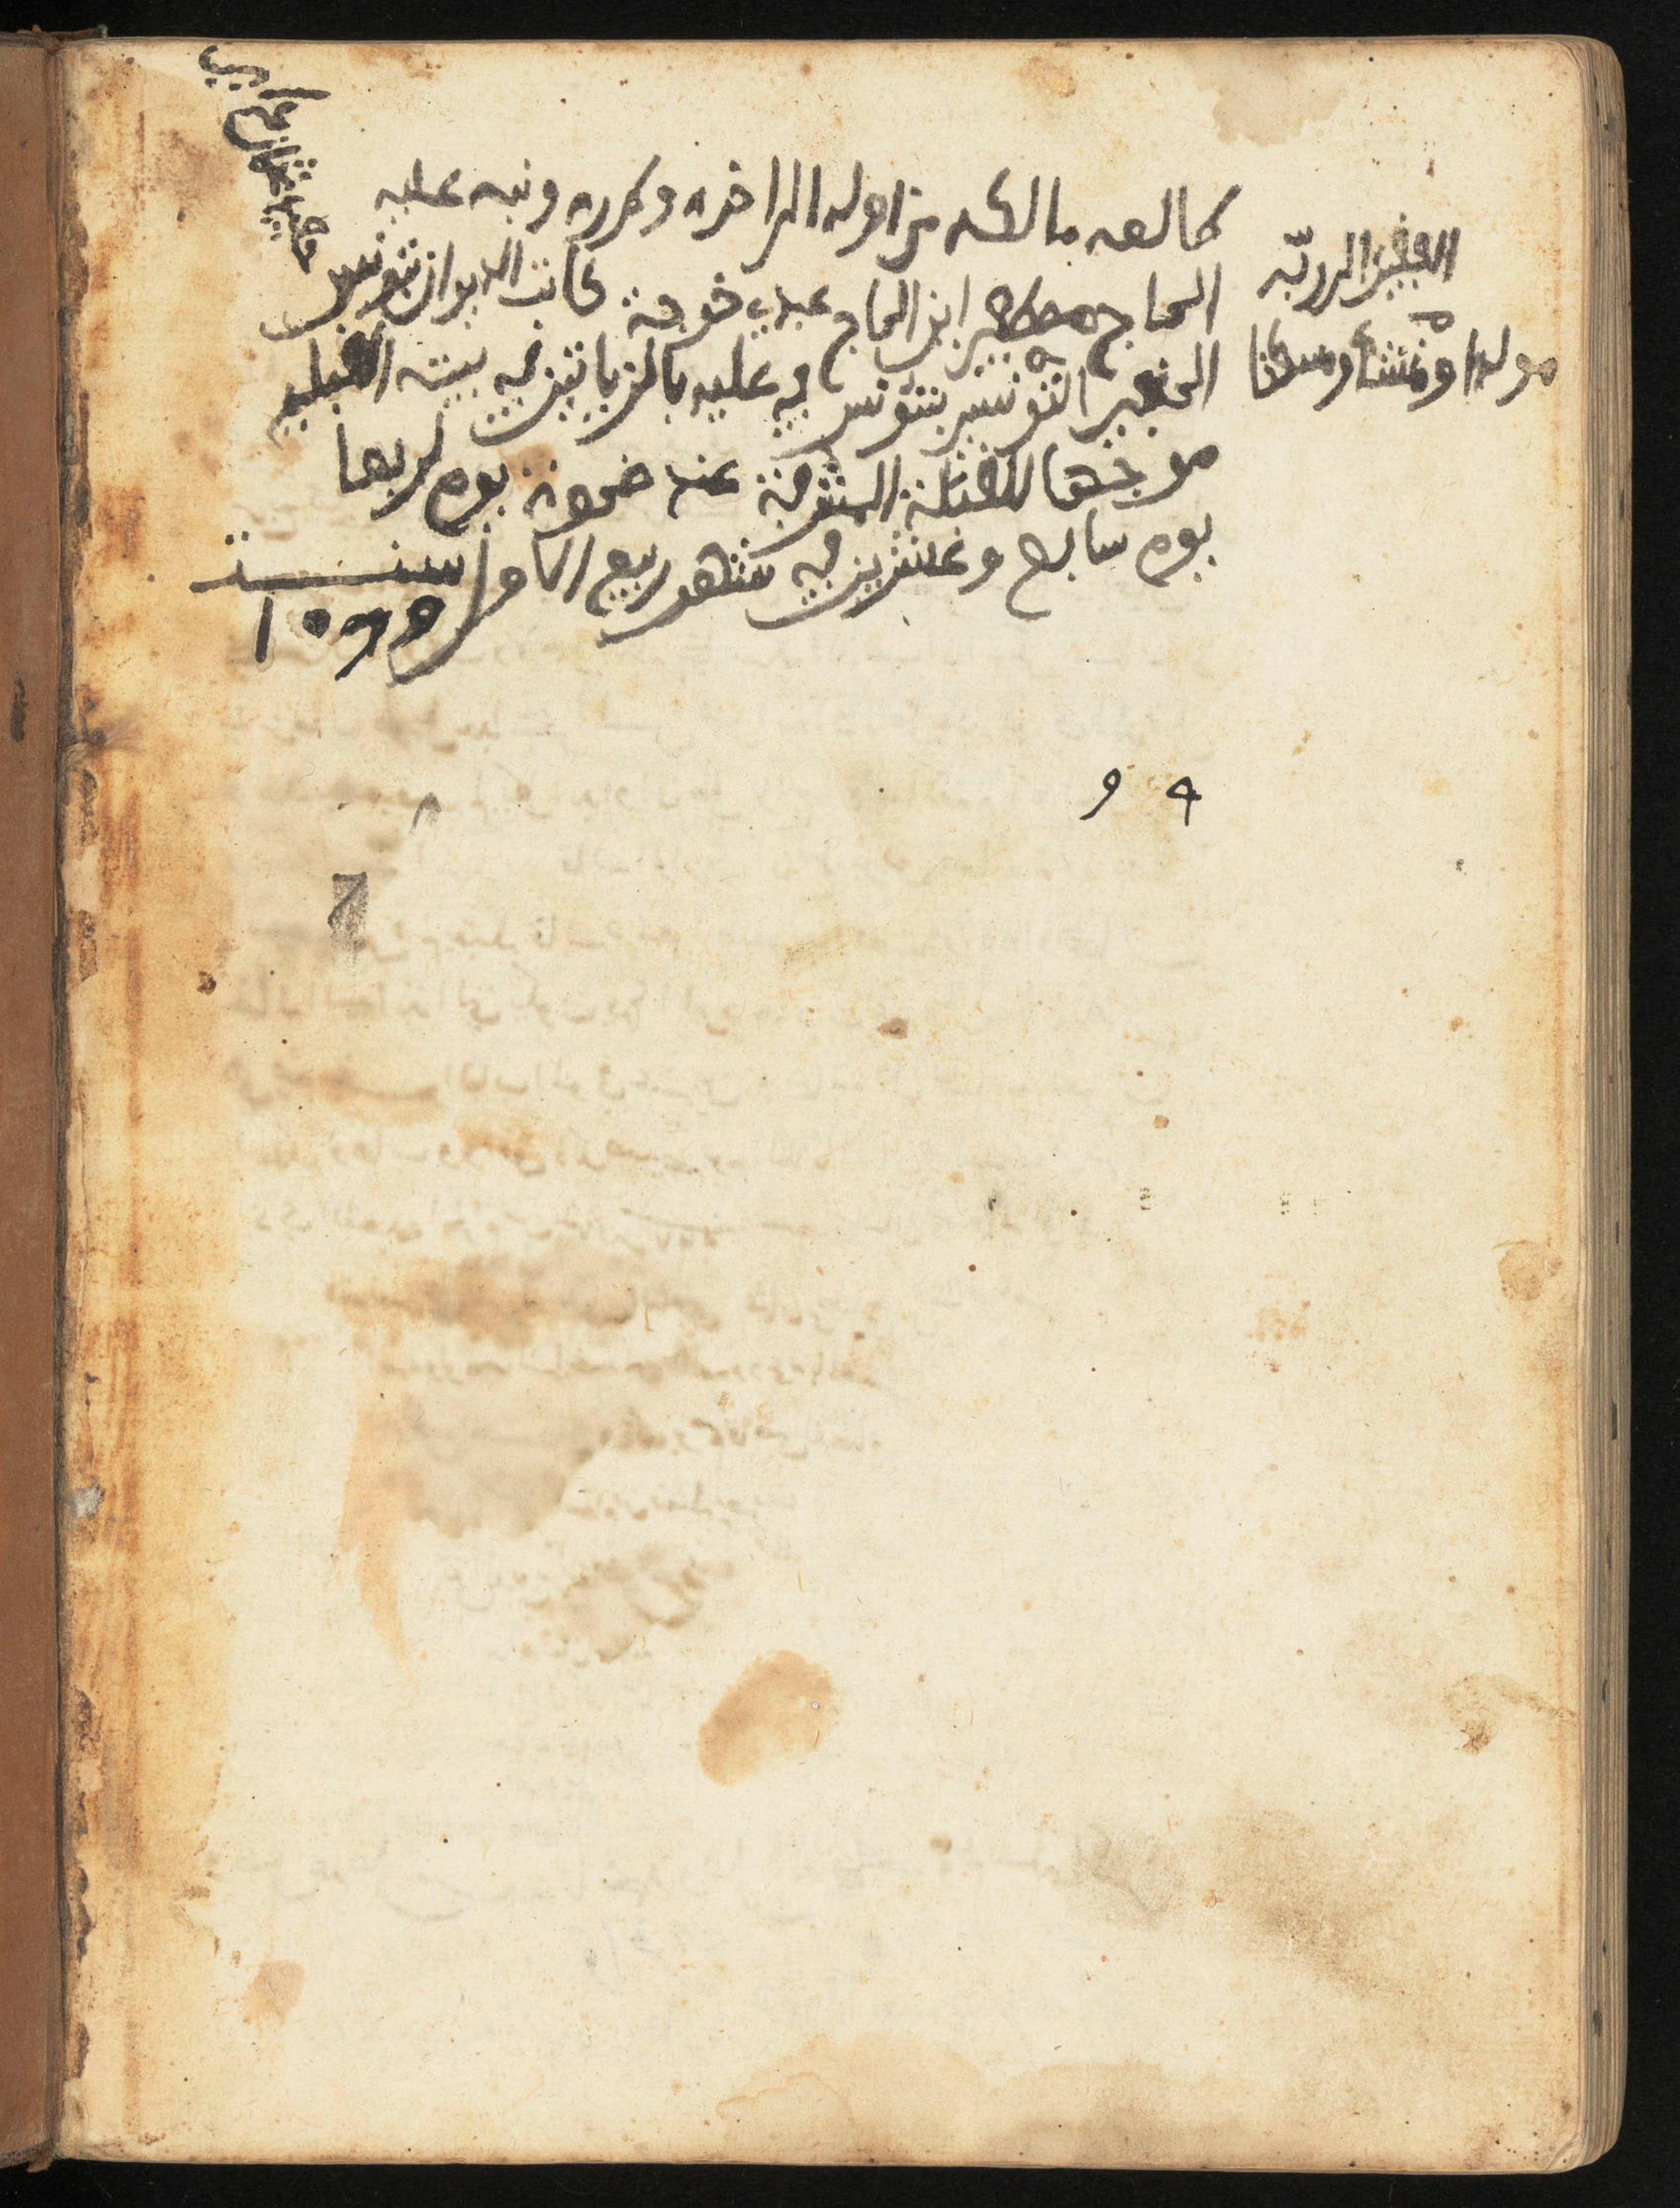 طالعه مالكه من اوله الى اخره وكرره ونبه عليه
الفقير الى ربه
الحاج مصطفى ابن الحاج عبدي خوجة كاتب الديوان بتونس
مولدا ومنشأ ومسكنا
الحنفي التونسي بتونس في علية بالمزياتين في بيته القبلي
موجها للقبلة المشرفة عند ضحوة يوم اربعا
يوم سابع وعشرين في شهر ربيع الاول سنة
١٠٩٩